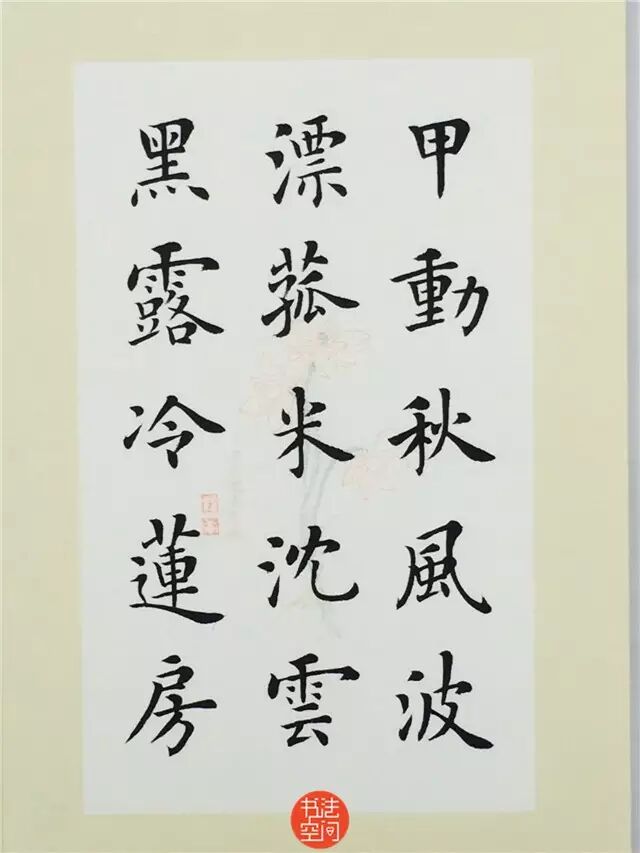 甲動秋風波
漂菰米沈雲
黑露冷蓮房
书法
空间